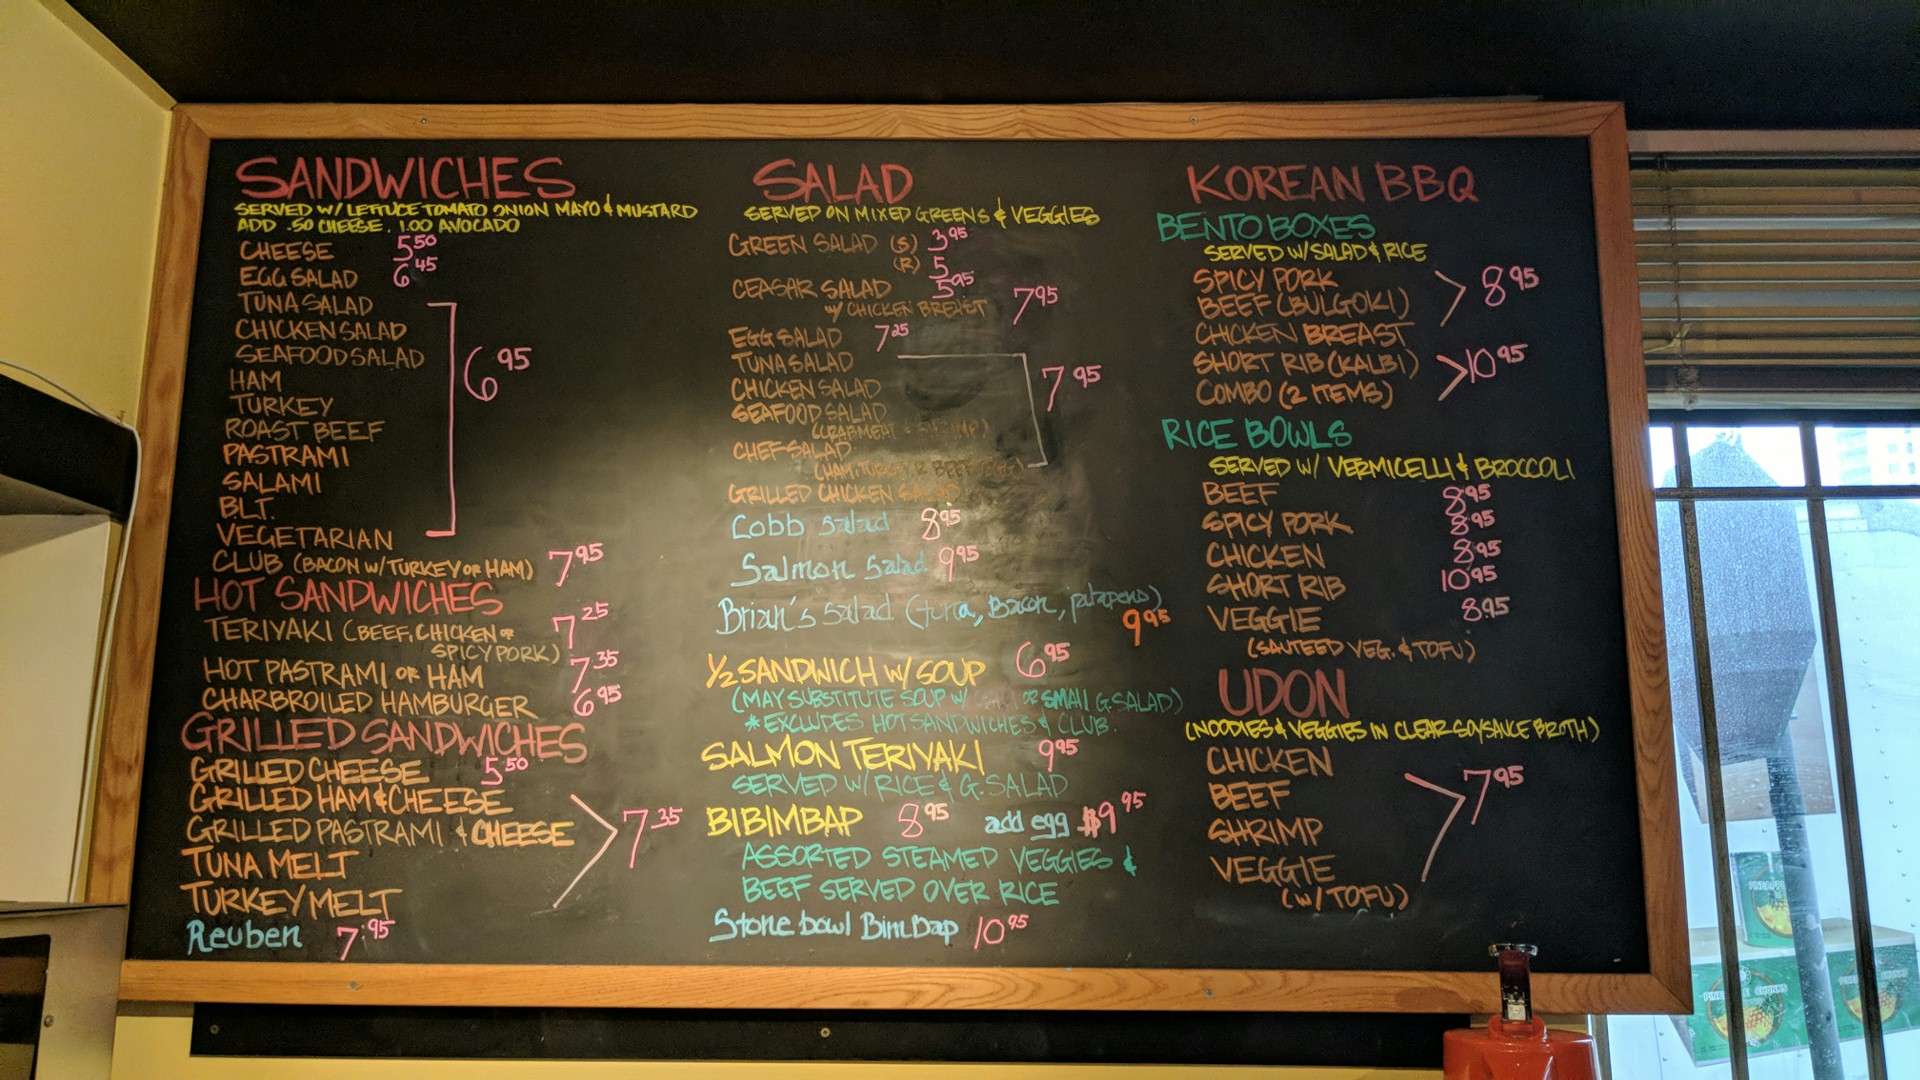 SANDWICHES
SERVED W/ LETTUCE TOMATO ONION MAYO & MUSTARD
ADD .50 CHEESE, 1.00 AVOCADO
CHEESE 5.50
EGG SALAD 6.45
TUNA SALAD
CHICKEN SALAD
SEAFOOD SALAD 6.95
HAM
TURKEY
ROAST BEEF
PASTRAMI
SALAMI
BLT.
VEGETARIAN
CLUB (BACON W/TURKEY OR HAM) 7.95
HOT SANDWICHES
TERIYAKI (BEEF, CHICKEN OR 7.25
SPICY PORK)
HOT PASTRAMI OR HAM 7.35
CHARBROILED HAMBURGER 6.95
GRILLED SANDWICHES
GRILLED CHEESE 5.50
GRILLED HAM & CHEESE
GRILLED PASTRAMI & CHEESE 7.35
TUNA MELT
TURKEY MELT
Reuben 7.95
SALAD
SERVED ON MIXED GREENS & VEGGIES
GREEN SALAD (S) 3.95
(R) 5
CEASAR SALAD 5.95
W/ CHICKEN BREAST 7.95
EGG SALAD 7.25
TUNA SALAD
CHICKEN SALAD 7.95
SEAFOOD SALAD
(CRABMEAT & SHRIMP)
CHEF SALAD
(HAM, TURKEY, R BEEF, EGG)
GRILLED CHICKEN SALAD
Cobb salad 8.95
Salmon Salad 9.95
Brian's Salad (tuna, Bacon, jalapeno)
9.95
1/2 SANDWICH W/ SOUP 6.95
(MAY SUBSTITUTE SOUP W/ OR SMALL G. SALAD)
* EXCLUDES HOT SANDWICHES & CLUB.
SALMON TERIYAKI 9.95
SERVED W/ RICE & G. SALAD
BIBIMBAP 8.95 add egg $9.95
ASSORTED STEAMED VEGGIES &
BEEF SERVED OVER RICE
Stone bowl BimBap 10.95
KOREAN BBQ
BENTO BOXES
SERVED W/ SALAD & RICE
SPICY PORK
BEEF (BULGOKI) 8.95
CHICKEN BREAST
SHORT RIB (KALBI) 10.95
COMBO (2 ITEMS)
RICE BOWLS
SERVED W/ VERMICELLI & BROCCOLI
BEEF 8.95
SPICY PORK 8.95
CHICKEN 8.95
SHORT RIB 10.95
VEGGIE 8.95
(SAUTEED VEG. & TOFU)
UDON
(NOODLES & VEGGIES IN CLEAR SOYSAUCE BROTH)
CHICKEN
BEEF 7.95
SHRIMP
VEGGIE
(W/ TOFU)
PINEAPPLE CHUNKS